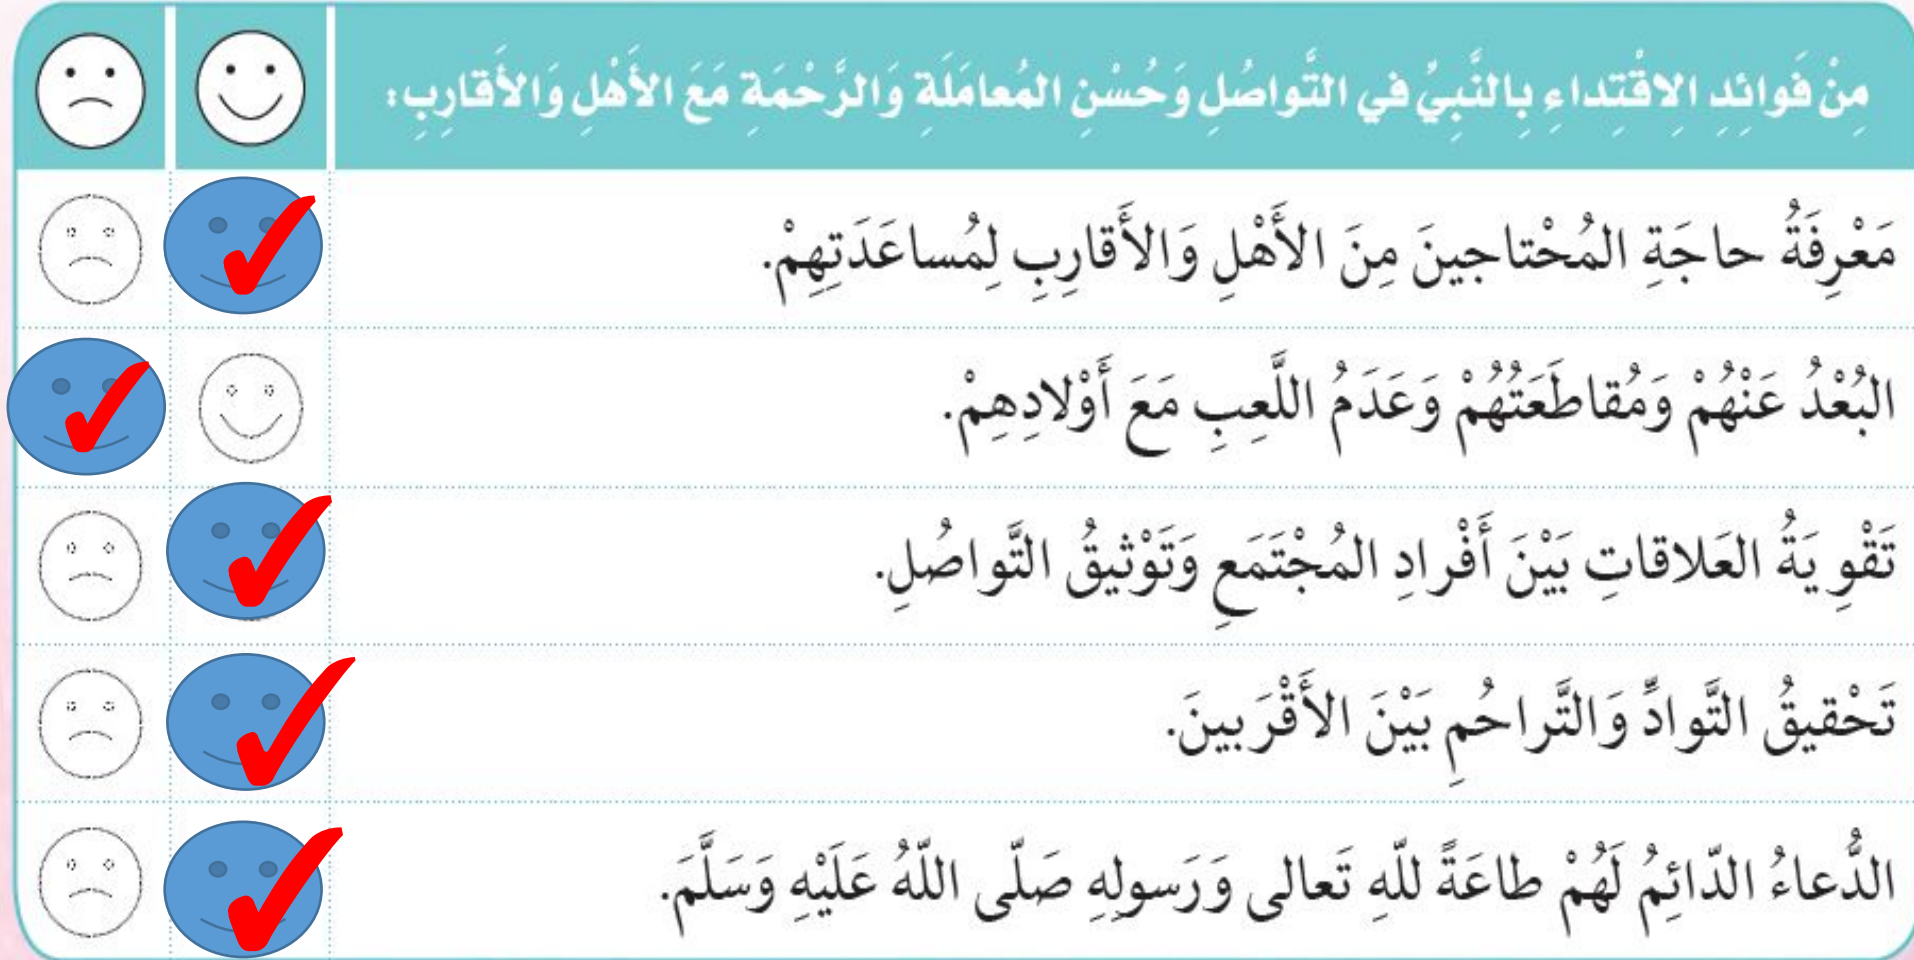 مِنْ فَوائِدِ الاِقْتِداءِ بِالنَّبِيِّ في التَّواصُلِ وَحُسْنِ المُعامَلَةِ وَالرَّحْمَةِ مَعَ الأَهْلِ وَالأَقارِبِ:
مَعْرِفَةُ حاجَةِ المُحْتاجينَ مِنَ الأَهْلِ وَالأَقارِبِ لِمُساعَدَتِهِمْ.
البُعْدُ عَنْهُمْ وَمُقاطَعَتُهُمْ وَعَدَمُ اللَّعِبِ مَعَ أَوْلادِهِمْ.
تَقْوِيَةُ العَلاقاتِ بَيْنَ أَفْرادِ المُجْتَمَعِ وَتَوْثيقُ التَّواصُلِ.
تَحْقيقُ التَّوادِّ وَالتَّراحُمِ بَيْنَ الأَقْرَبينَ.
الدُّعاءُ الدّائِمُ لَهُمْ طاعَةً للّهِ تَعالى وَرَسولِهِ صَلّى اللّهُ عَلَيْهِ وَسَلَّمَ.